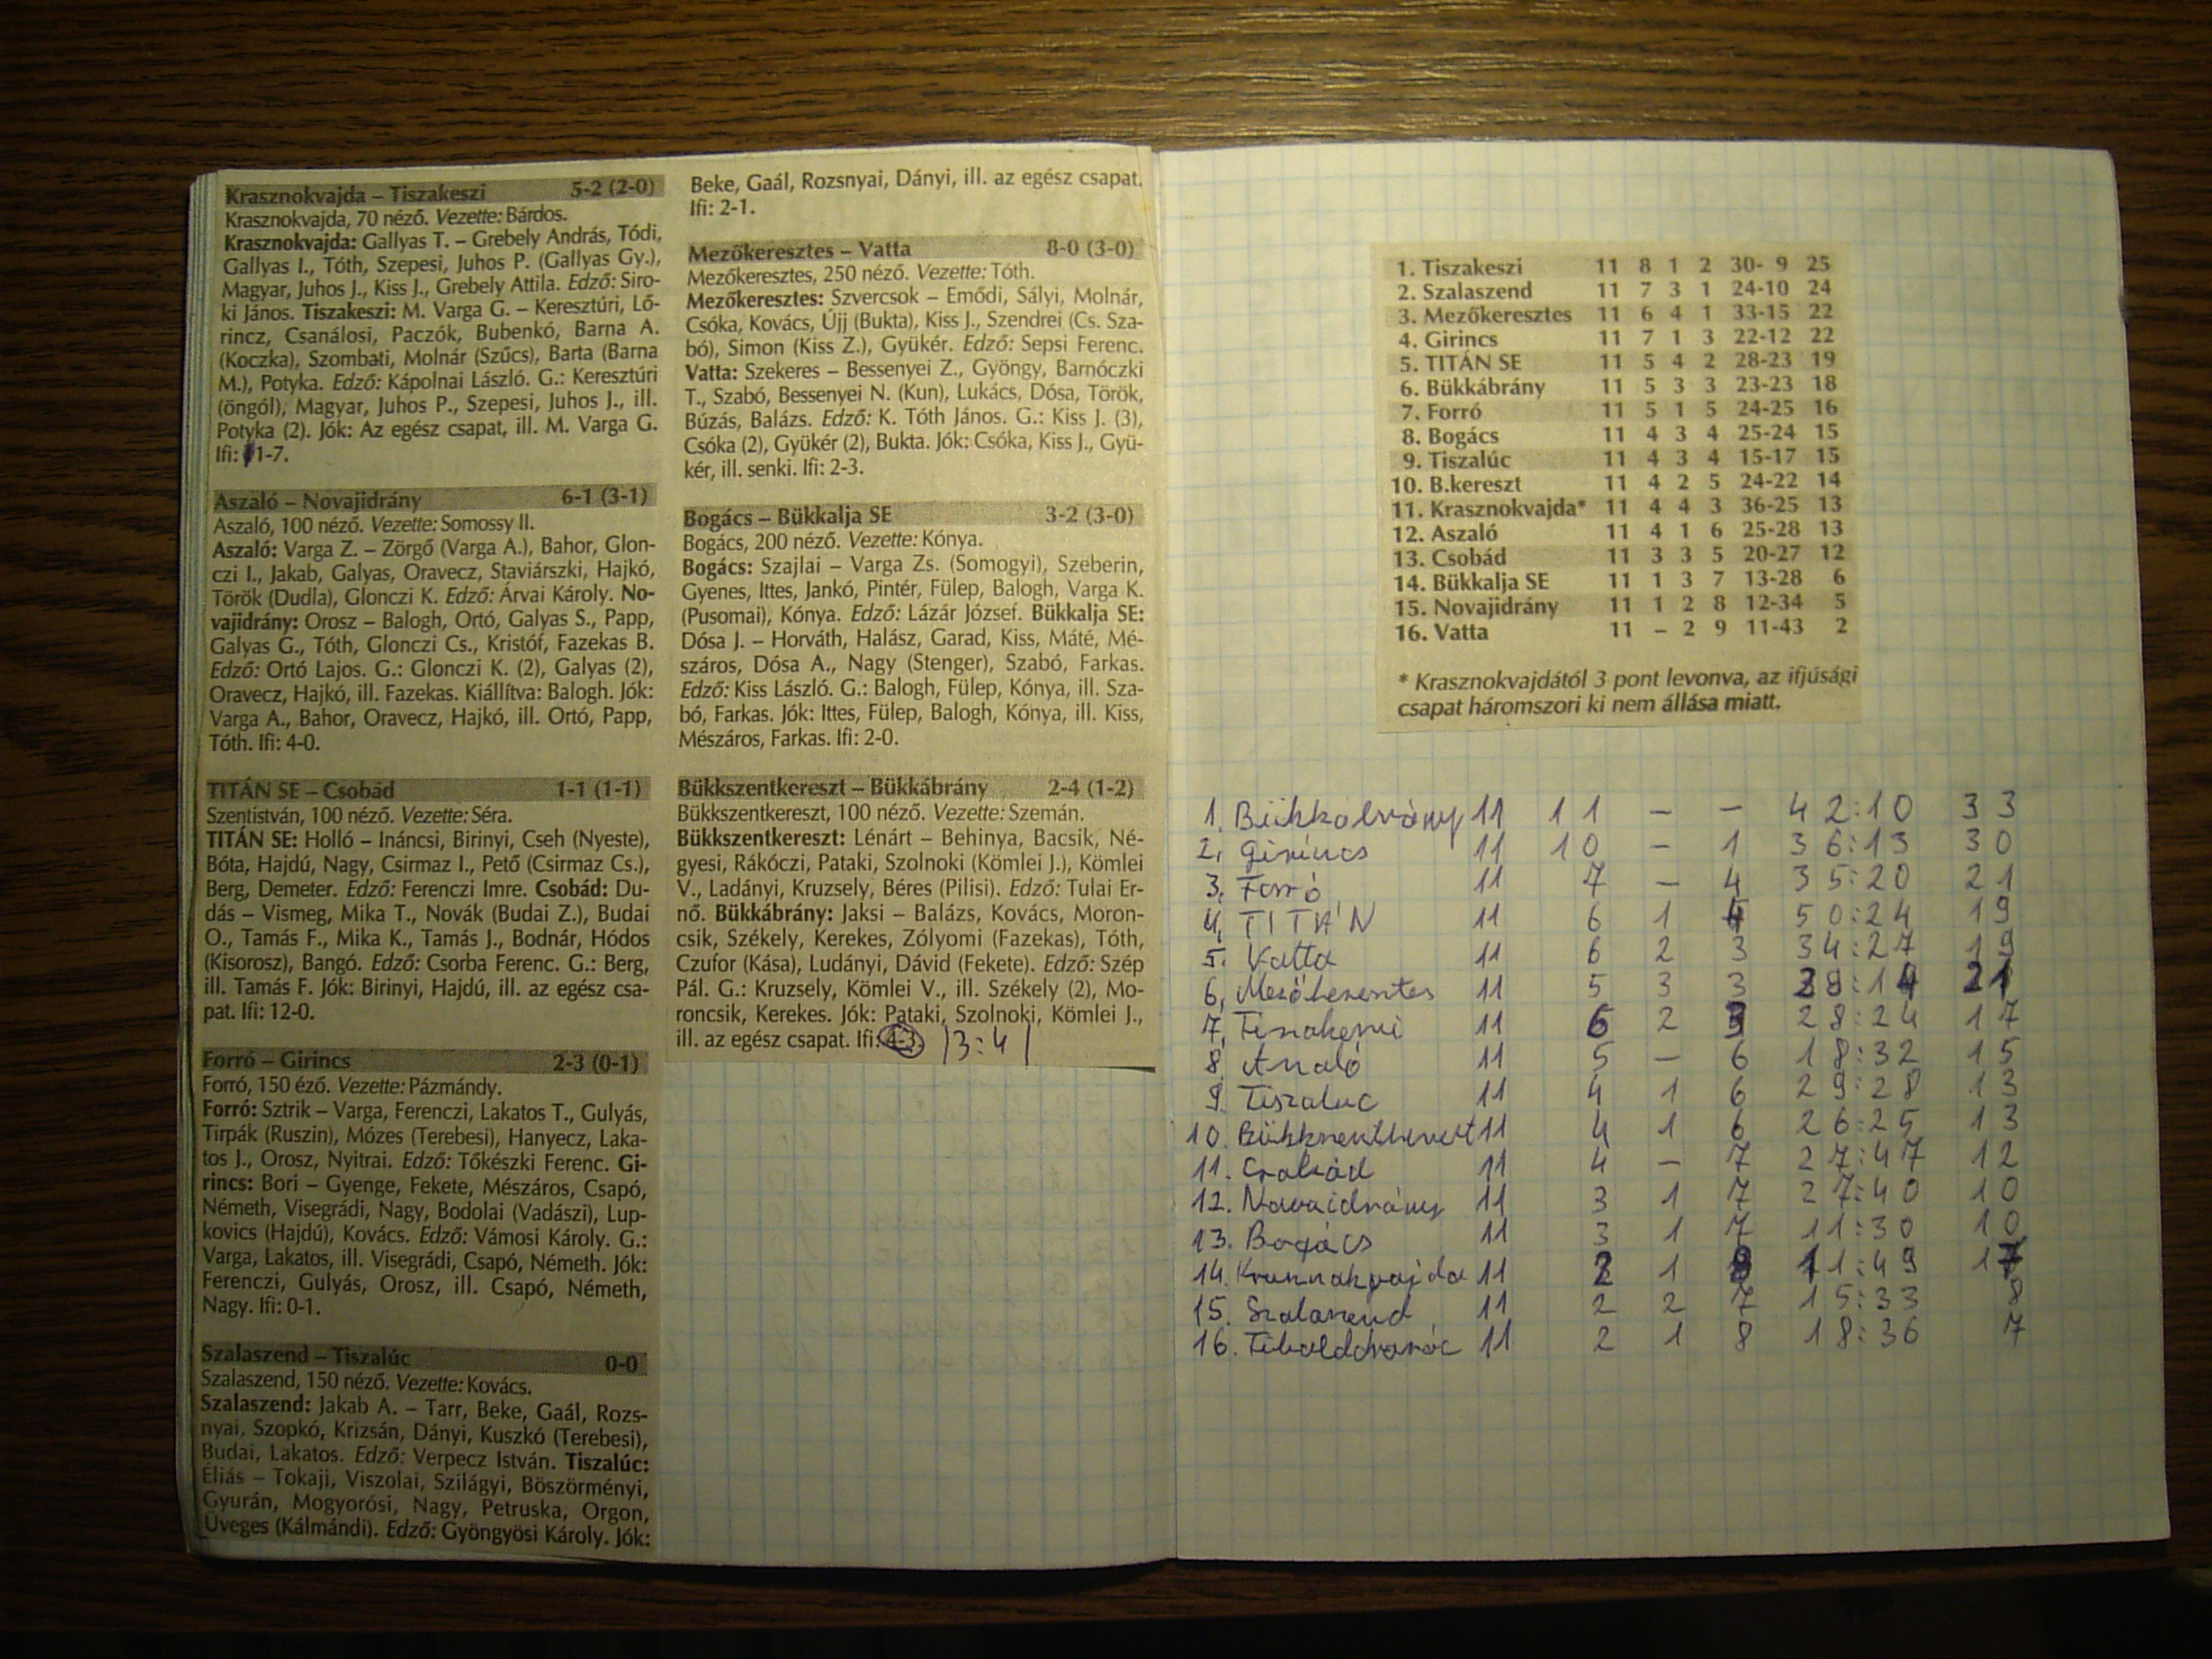 Krasznokvajda – Tiszakeszi 5-2 (2-0)
Krasznokvajda, 70 néző. Vezette: Bárdos.
Krasznokvajda: Gallyas T. – Grebely András, Tódi,
Gallyas I., Tóth, Szepesi, Juhos P. (Gallyas Gy.),
Magyar, Juhos J., Kiss J., Grebely Attila. Edző: Siro-
ki János. Tiszakeszi: M. Varga G. – Keresztúri, Lő-
rincz, Csanálosi, Paczók, Bubenkó, Barna A.
(Koczka), Szombati, Molnár (Szűcs), Barta (Barna
M.), Potyka. Edző: Kápolnai László. G.: Keresztúri
(öngól), Magyar, Juhos P., Szepesi, Juhos J., ill.
Potyka (2). Jók: Az egész csapat, ill. M. Varga G.
Ifi: 1-7.
Aszaló – Novajidrány 6-1 (3-1)
Aszaló, 100 néző. Vezette: Somossy II.
Aszaló: Varga Z. – Zörgő (Varga A.), Bahor, Glon-
czi I., Jakab, Galyas, Oravecz, Staviárszki, Hajkó,
Török (Dudla), Glonczi K. Edző: Árvai Károly. No-
vajidrány: Orosz – Balogh, Ortó, Galyas S., Papp,
Galyas G., Tóth, Glonczi Cs., Kristóf, Fazekas B.
Edző: Ortó Lajos. G.: Glonczi K. (2), Galyas (2),
Oravecz, Hajkó, ill. Fazekas. Kiállítva: Balogh. Jók:
Varga A., Bahor, Oravecz, Hajkó, ill. Ortó, Papp,
Tóth. Ifi: 4-0.
TITÁN SE – Csobád 1-1 (1-1)
Szentistván, 100 néző. Vezette: Séra.
TITÁN SE: Holló – Ináncsi, Birinyi, Cseh (Nyeste),
Bóta, Hajdú, Nagy, Csirmaz I., Pető (Csirmaz Cs.),
Berg, Demeter. Edző: Ferenczi Imre. Csobád: Du-
dás – Vismeg, Mika T., Novák (Budai Z.), Budai
O., Tamás F., Mika K., Tamás J., Bodnár, Hódos
(Kisorosz), Bangó. Edző: Csorba Ferenc. G.: Berg,
ill. Tamás F. Jók: Birinyi, Hajdú, ill. az egész csa-
pat. Ifi: 12-0.
Forró – Girincs 2-3 (0-1)
Forró, 150 éző. Vezette: Pázmándy.
Forró: Sztrik – Varga, Ferenczi, Lakatos T., Gulyás,
Tirpák (Ruszin), Mózes (Terebesi), Hanyecz, Laka-
tos J., Orosz, Nyitrai. Edző: Tőkészki Ferenc. Gi-
rincs: Bori – Gyenge, Fekete, Mészáros, Csapó,
Németh, Visegrádi, Nagy, Bodolai (Vadászi), Lup-
kovics (Hajdú), Kovács. Edző: Vámosi Károly. G.:
Varga, Lakatos, ill. Visegrádi, Csapó, Németh. Jók:
Ferenczi, Gulyás, Orosz, ill. Csapó, Németh,
Nagy. Ifi: 0-1.
Szalaszend – Tiszalúc 0-0
Szalaszend, 150 néző. Vezette: Kovács.
Szalaszend: Jakab A. – Tarr, Beke, Gaál, Rozs-
nyai, Szopkó, Krizsán, Dányi, Kuszkó (Terebesi),
Budai, Lakatos. Edző: Verpecz István. Tiszalúc:
Éliás – Tokaji, Viszolai, Szilágyi, Böszörményi,
Gyurán, Mogyorósi, Nagy, Petruska, Orgon,
Üveges (Kálmándi). Edző: Gyöngyösi Károly. Jók:
Beke, Gaál, Rozsnyai, Dányi, ill. az egész csapat.
Ifi: 2-1.
Mezőkeresztes – Vatta 8-0 (3-0)
Mezőkeresztes, 250 néző. Vezette: Tóth.
Mezőkeresztes: Szvercsok – Emődi, Sályi, Molnár,
Csóka, Kovács, Újj (Bukta), Kiss J., Szendrei (Cs. Sza-
bó), Simon (Kiss Z.), Gyükér. Edző: Sepsi Ferenc.
Vatta: Szekeres – Bessenyei Z., Gyöngy, Barnóczki
T., Szabó, Bessenyei N. (Kun), Lukács, Dósa, Török,
Búzás, Balázs. Edző: K. Tóth János. G.: Kiss J. (3),
Csóka (2), Gyükér (2), Bukta. Jók: Csóka, Kiss J., Gyü-
kér, ill. senki. Ifi: 2-3.
Bogács – Bükkalja SE 3-2 (3-0)
Bogács, 200 néző. Vezette: Kónya.
Bogács: Szajlai – Varga Zs. (Somogyi), Szeberin,
Gyenes, Ittes, Jankó, Pintér, Fülep, Balogh, Varga K.
(Pusomai), Kónya. Edző: Lázár József. Bükkalja SE:
Dósa J. – Horváth, Halász, Garad, Kiss, Máté, Mé-
száros, Dósa A., Nagy (Stenger), Szabó, Farkas.
Edző: Kiss László. G.: Balogh, Fülep, Kónya, ill. Sza-
bó, Farkas. Jók: Ittes, Fülep, Balogh, Kónya, ill. Kiss,
Mészáros, Farkas. Ifi: 2-0.
Bükkszentkereszt – Bükkábrány 2-4 (1-2)
Bükkszentkereszt, 100 néző. Vezette: Szemán.
Bükkszentkereszt: Lénárt – Behinya, Bacsik, Né-
gyesi, Rákóczi, Pataki, Szolnoki (Kömlei J.), Kömlei
V., Ladányi, Kruzsely, Béres (Pilisi). Edző: Tulai Er-
nő. Bükkábrány: Jaksi – Balázs, Kovács, Moron-
csik, Székely, Kerekes, Zólyomi (Fazekas), Tóth,
Czufor (Kása), Ludányi, Dávid (Fekete). Edző: Szép
Pál. G.: Kruzsely, Kömlei V., ill. Székely (2), Mo-
roncsik, Kerekes. Jók: Pataki, Szolnoki, Kömlei J.,
ill. az egész csapat. Ifi: 4-3. |3:4|
1. Tiszakeszi 11 8 1 2 30- 9 25
2. Szalaszend 11 7 3 1 24-10 24
3. Mezőkeresztes 11 6 4 1 33-15 22
4. Girincs 11 7 1 3 22-12 22
5. TITÁN SE 11 5 4 2 28-23 19
6. Bükkábrány 11 5 3 3 23-23 18
7. Forró 11 5 1 5 24-25 16
8. Bogács 11 4 3 4 25-24 15
9. Tiszalúc 11 4 3 4 15-17 15
10. B.kereszt 11 4 2 5 24-22 14
11. Krasznokvajda* 11 4 4 3 36-25 13
12. Aszaló 11 4 1 6 25-28 13
13. Csobád 11 3 3 5 20-27 12
14. Bükkalja SE 11 1 3 7 13-28 6
15. Novajidrány 11 1 2 8 12-34 5
16. Vatta 11 – 2 9 11-43 2
* Krasznokvajdától 3 pont levonva, az ifjúsági
csapat háromszori ki nem állása miatt.
1. Bükkábrány 11 11 – – 42:10 33
2. Girincs 11 10 – 1 36:13 30
3. Forró 11 7 – 4 35:20 21
4. TITÁN 11 6 1 4 50:24 19
5. Vatta 11 6 2 3 34:27 19
6. Mezőkeresztes 11 5 3 3 :14 21
7. Tiszakeszi 11 6 2 3 28:24 17
8. Aszaló 11 5 – 6 18:32 15
9. Tiszaluc 11 4 1 6 29:28 13
10. Bükkszentkereszt 11 4 1 6 26:25 13
11. Csobád 11 4 – 7 27:47 12
12. Novaidrány 11 3 1 7 27:40 10
13. Bogács 11 3 1 7 11:30 10
14. Krasznokvajda 11 2 1 11:49
15. Szalaszend 11 2 2 7 15:33 8
16. Tibolddaróc 11 2 1 8 18:36 7